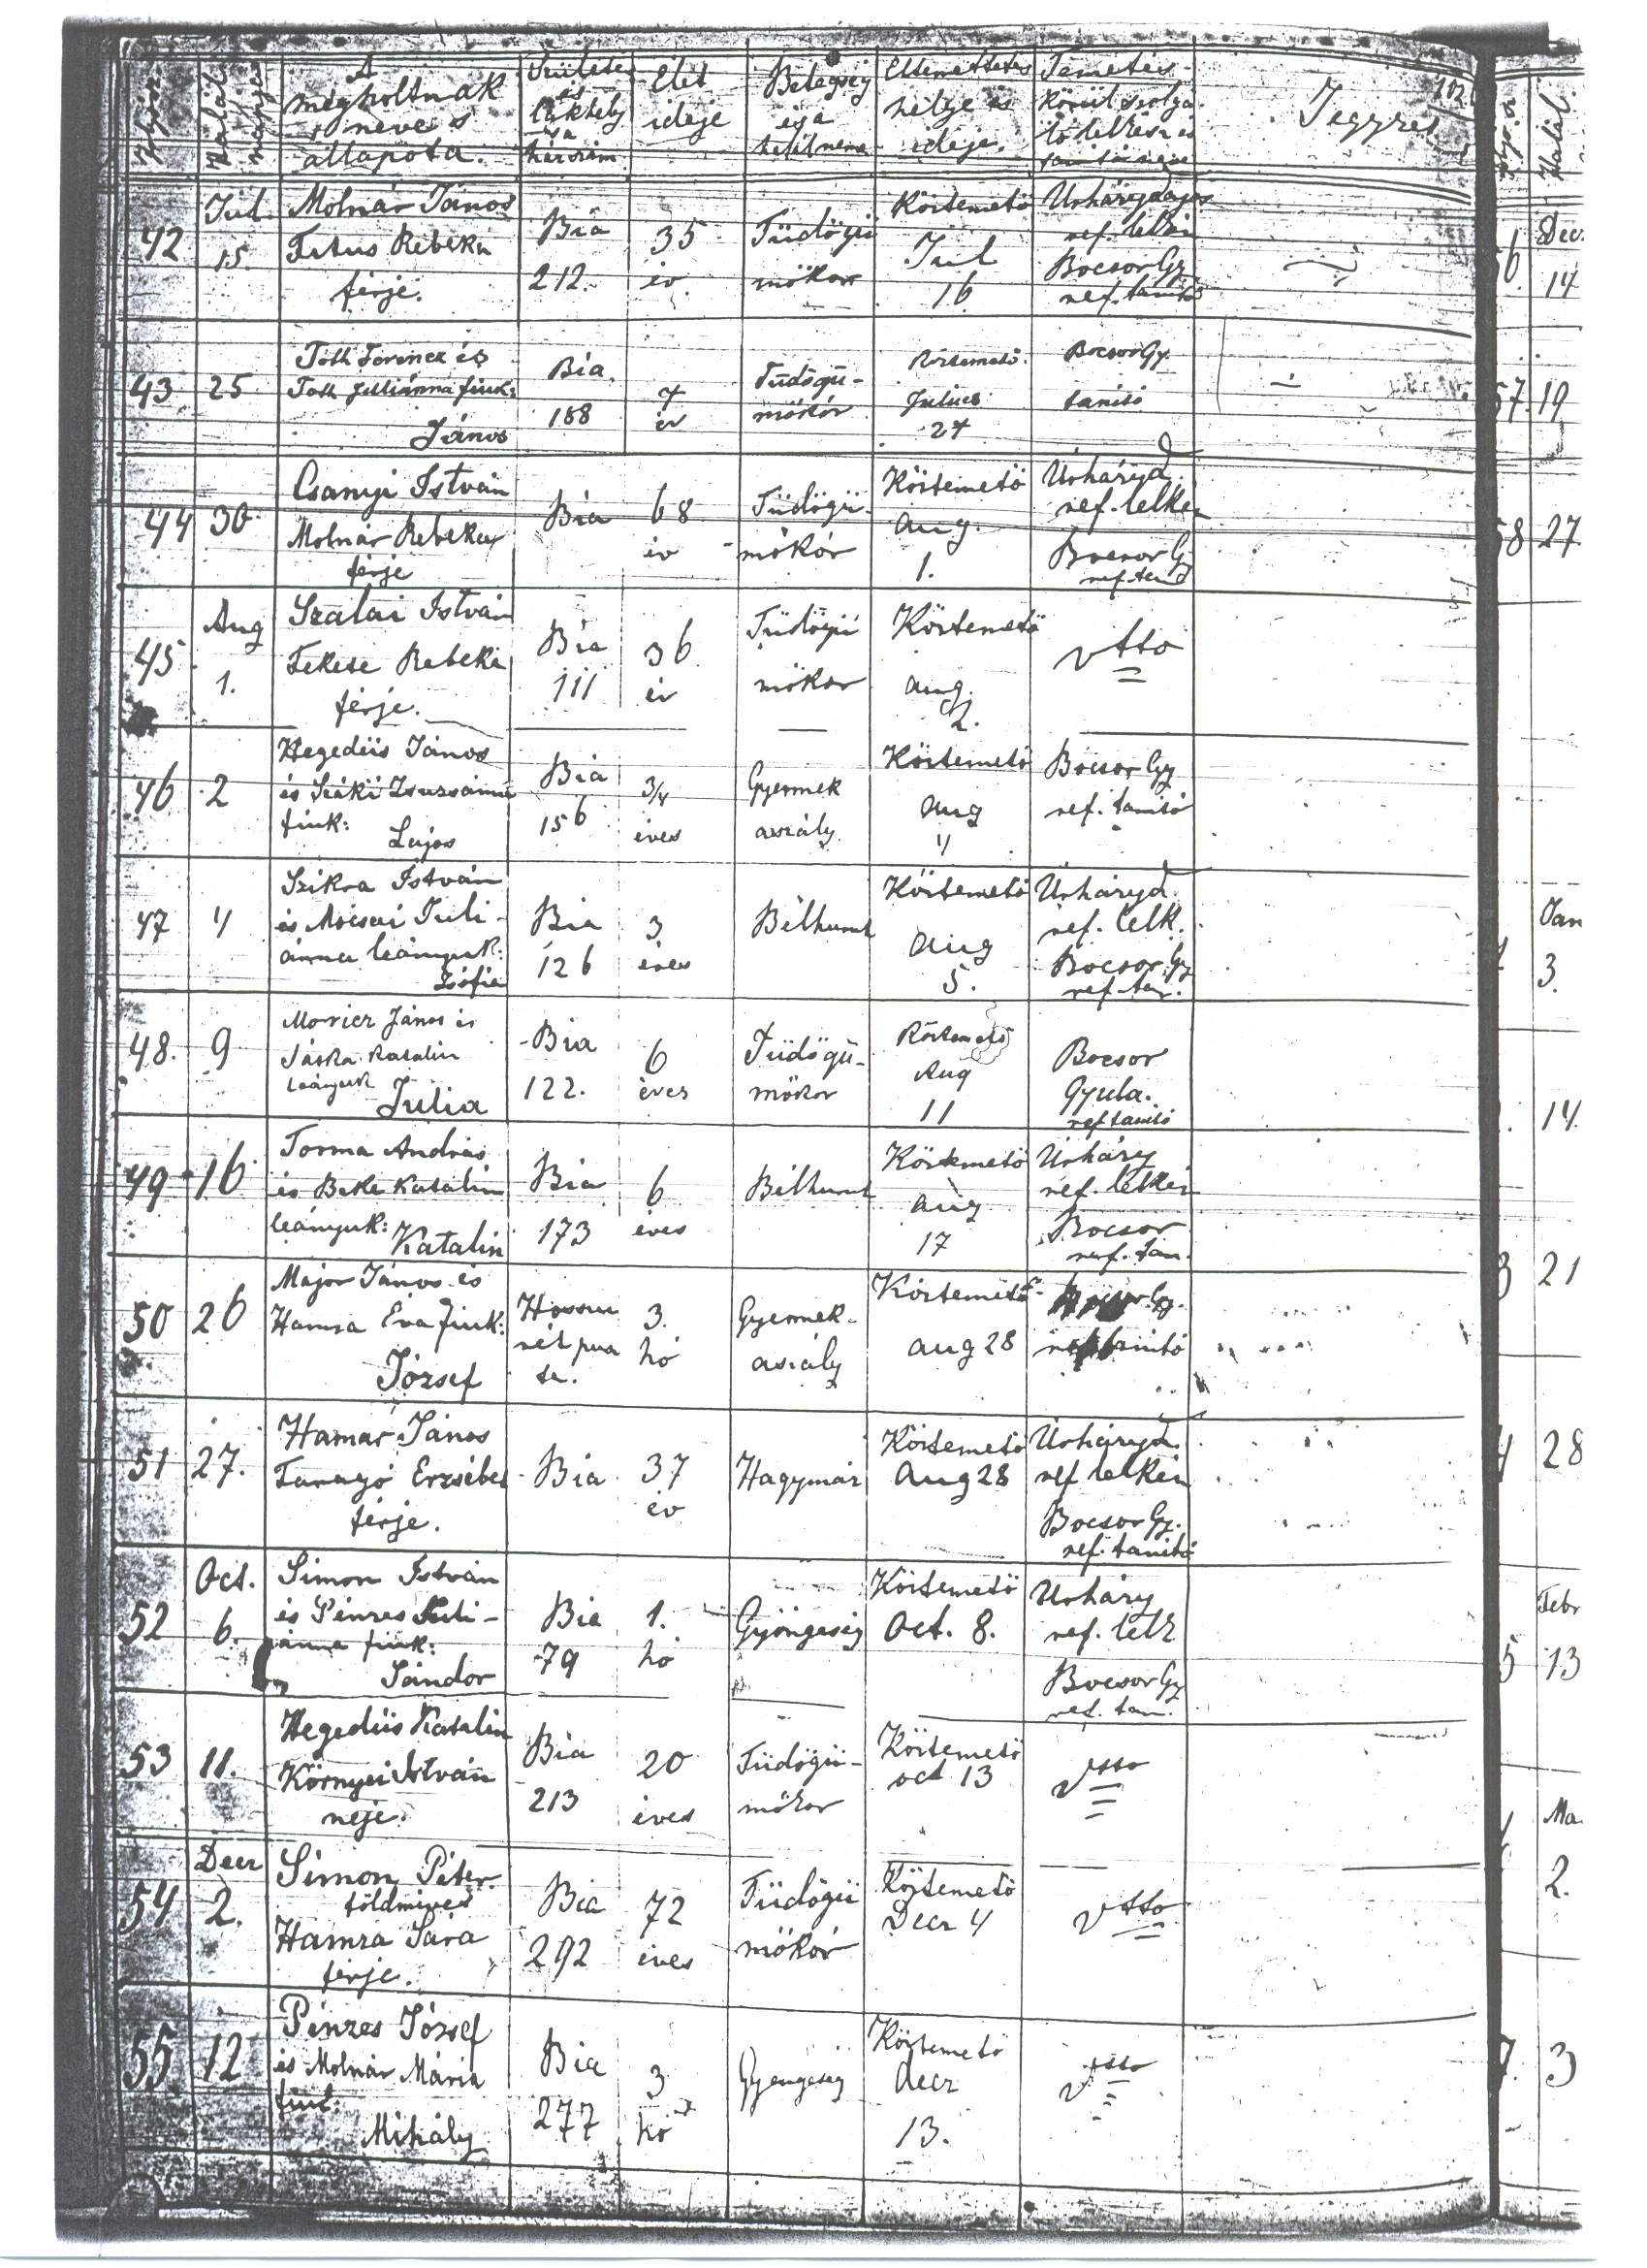 A
megholtnak
neve s
állapota.
Születés
és
lakhely
és a
házszám
Élet
ideje
Betegség
és a
halál neme
Eltemettetés
helye és
ideje.
Temetés
körül szolgá-
ló lelkész és
tanító neve
Jegyzet
42
Jul.
15.
Molnár János
Titus Rebeka
férje.
Bia
212.
35
év
Tüdőgü
mőkor
Köztemető
Jul
16
ref. lelkész
Bocsor Gy.
ref. tanító
43
25
Tóth Ferencz és
Tóth Juliánna fiuk:
János
Bia.
188
7
év
Tüdőgü-
mőkór
Köztemető
Julius
27
Bocsor Gy.
tanító
44
30
Csanyi István
Molnár Rebeka
férje
Bia
68
év
Tüdőgü-
mőkór
Köztemető
aug.
1.
Úrháryd.
ref. lelkész
Bocsor G
ref. tanító
45
Aug
1.
Szalai István
Fekete Rebeka
férje.
Bia
111
36
év
Tüdőgü
mőkor
Köztemető
aug.
2.
vtto
46
2
Hegedüs János
és Száki Zsuzsánna
fiuk:
Lajos
Bia
156
3/4
éves
Gyermek
aszály
Köztemető
aug
4
Bocsor Gy
ref. tanító
47
4
Szikra István
és Mócsai Juli-
ánna leányuk:
Zsófia
Bia
126
3
éves
Bélhurut
Köztemető
aug
5.
Úrháryd.
ref. lelk.
Bocsor Gy
ref. tan.
48.
9
Móricz János és
Jáska Katalin
leányuk
Julia
Bia
122.
6
éves
Tüdőgü-
mőkor
Köztemető
Aug
11
Bocsor
Gyula.
ref tanító
49
16
Torma András
és Beke Katalin
leányuk: Katalin
Bia
173
6
éves
Bélhurut
Köztemető
aug
17
Úrháry
ref. lelkész
Bocsor
ref. tan.
50
26
Major János és
Hamza Éva fiuk:
József
3.
hó
Gyermek-
aszály
Köztemető
aug 28
Bocsor Gy.
ref tanító
51
27.
Hamar János
Faragó Erzsébet
férje.
Bia
37
év
Hagymáz
Köztemető
Aug 28
Úrháryd.
ref lelkész
Bocsor Gy.
ref. tanító
52
Oct.
6.
Simon István
és Pénzes Juli-
ánna fiuk:
Sándor
Bia
79
1.
hó
Gyöngeség
Köztemető
Oct. 8.
Úrháry
ref. lelk
Bocsor Gy
ref. tan.
53
11.
Hegedüs Katalin
Környei István
neje.
Bia
213
20
éves
Tüdőgü-
mőkor
Köztemető
oct 13
vtto
54
Decz
2.
Simon Péter
földmíves
Hamza Sára
férje.
Bia
292
72
éves
Tüdőgü
mőkór
Köztemető
Decz 4
vtto
55
12
Pénzes József
és Molnár Mária
fiuk:
Mihály
Bia
277
3
hó
Gyengeség
Köztemető
decz
13.
vtto
Halál.
Dec.
14
57.
19
58
27.
Jan
3.
14.
21
28
Febr
13
Ma
2.
3